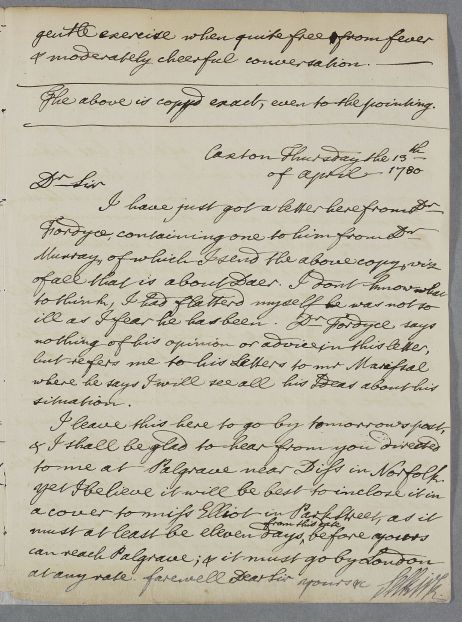 gentle exercise when quite free from fever
& moderately cheerful conversation.
The above is copyd exact, even to the pointing.
Caxton Thursday the 13th
of april 1780
Dr Sir
I have just got a letter here from Dr
Fordyce, containing one to him from Dr
Murray, of which I send the above copy, viz
of all that is about Daer. I dont know what
to think, I had flatterd myself he was not so
ill as I fear he has been. Dr Fordyce says
nothing of his opinion or advice in this letter,
but refers me to his Letters to mr
where he says I will see all his Ideas about his
situation.
I leave this here to go by tomorrows post,
& I shall be glad to hear from you directed
to me at Palgrave near Diss in Norfolk.
yet I believe it will be best to inclose it in
a cover to miss Elliot in Park Street, as it
must at least be eleven days, from this date, before yours
can reach Palgrave; & it must go by London
at any rate. farewell Dear Sir yours &c